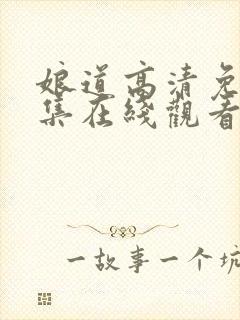 娘道高清免
集在綫觀看
一故事一个坑